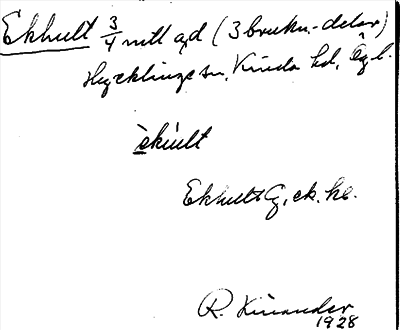 Ekhult 3/4 mtl gd (3 brukn.-delar)
Hycklinge sn, Kinda hd, Ög l.
èkùlt
Ekhult G, ek. kl.
R. Kinander
1928